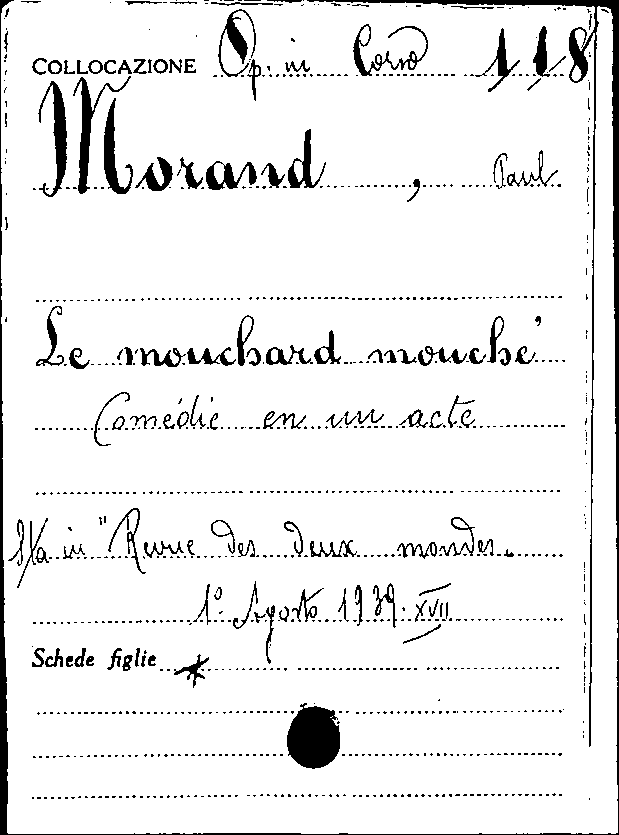 COLLOCAZIONE Op. in Corso 118
Morand, Paul
Le mouchard mouché
Comédie en un acte
Sta in "Revue des deux mondes.
1º Agosto 1939. XVII
Schede figlie *